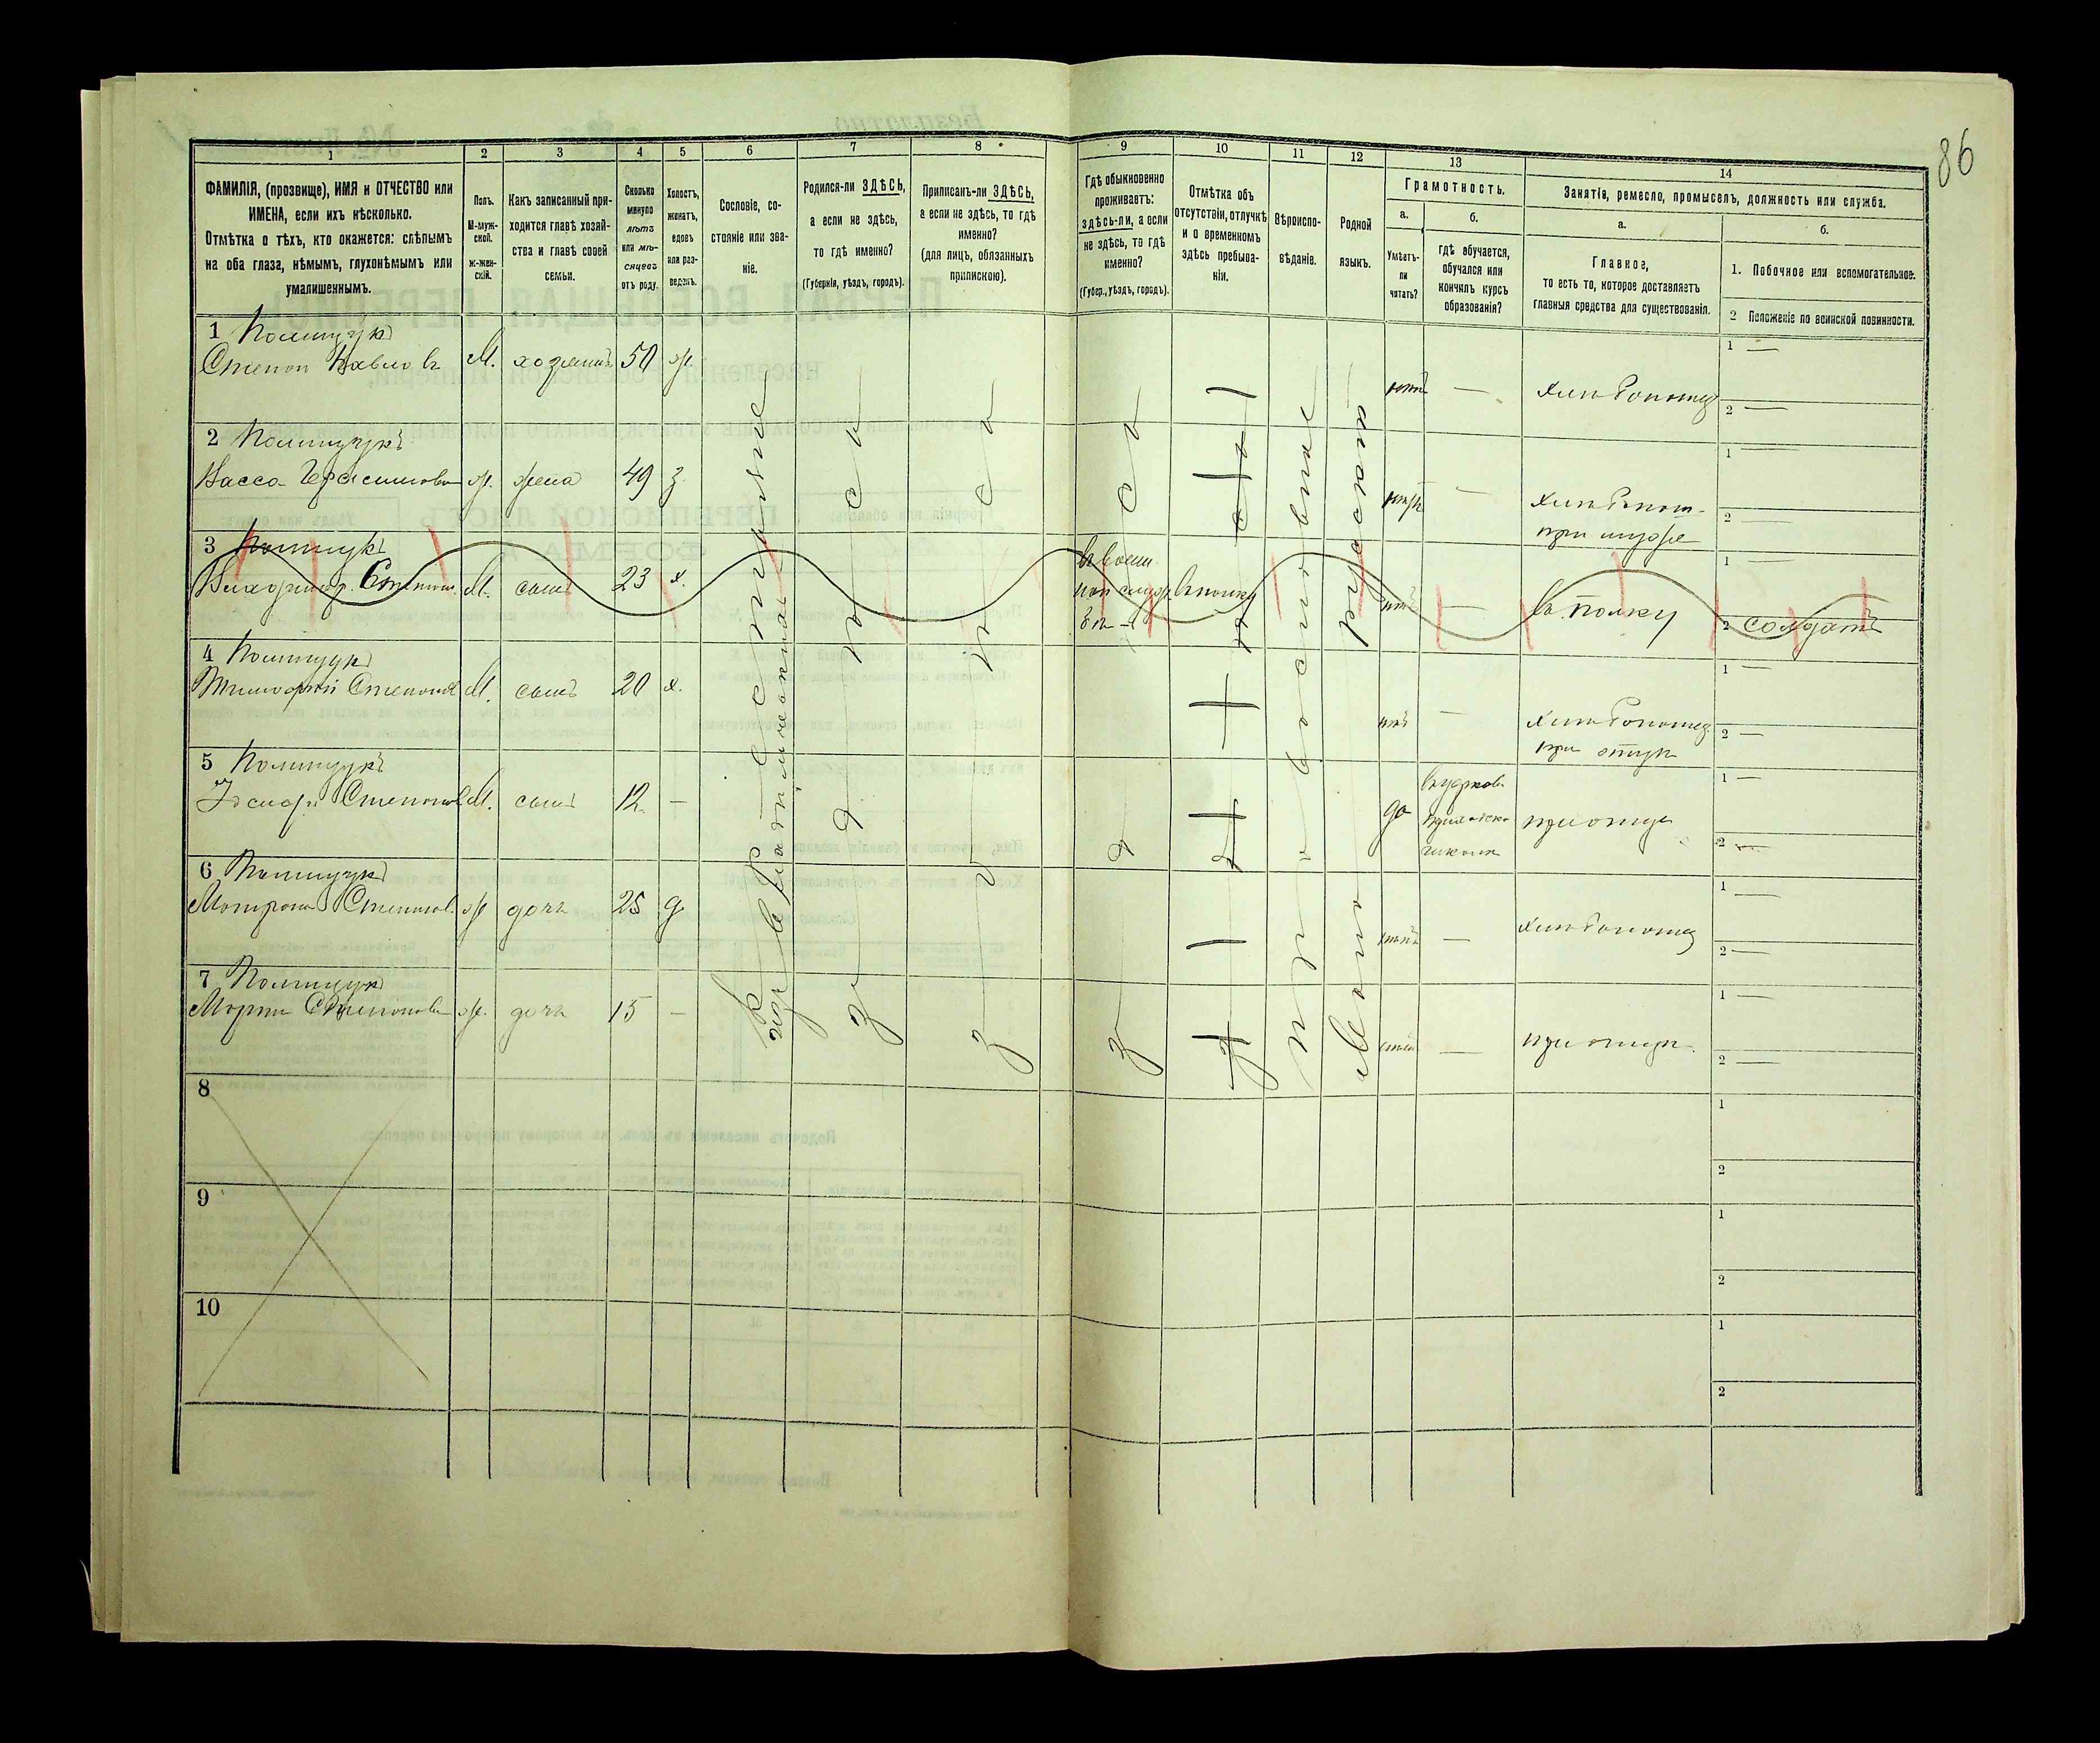 86
1
2
3
4
5
6
7
8
9
10
11
12
13
14
ФАМИЛІЯ, (прозвище), ИМЯ и ОТЧЕСТВО или
ИМЕНА, если ихъ нѣсколько.
Отмѣтка о тѣхъ, кто окажется: слѣпымъ
на оба глаза, нѣмымъ, глухонѣмымъ или
умалишеннымъ.
Полъ.
М-муж-
ской.
Ж-жен-
скій.
Какъ записанный при-
ходится главѣ хозяй-
ства и главѣ своей
семьи.
Сколько
минуло
лѣтъ
или мѣ-
сяцевъ
отъ роду.
Холостъ,
женатъ,
вдовъ
или раз-
веденъ.
Сословіе, со-
стояніе или зва-
ніе.
Родился-ли ЗДѢСЬ,
а если не здѣсь,
то гдѣ именно?
(Губернія, уѣздъ, городъ).
Приписанъ-ли ЗДѢСЬ,
а если не здѣсь, то гдѣ
именно?
(для лицъ, обязанныхъ
припискою).
Гдѣ обыкновенно
проживаетъ:
здѣсь-ли, а если
не здѣсь, то гдѣ
именно?
(Губер., уѣздъ, городъ).
Отмѣтка объ
отсутствіи, отлучкѣ
и о временномъ
здѣсь пребыва-
ніи.
Вѣроиспо-
вѣданіе.
Родной
языкъ.
Грамотность.
а.
Умѣетъ-
ли
читать?
б.
гдѣ обучается,
обучался или
кончилъ курсъ
образованія?
Занятія, ремесло, промыселъ, должность или служба.
а.
Главное,
то есть то, которое доставляетъ
главныя средства для существованія.
б.
1. Побочное или вспомогательное.
2 Положеніе по воинской повинности.
1 Полищукъ
Степан Павловъ М. хозяинъ 50 ж. нѣтъ — Хлѣбопашец 1 —
2 —
2 Полищукъ
Васса Герасимова ж. жена 49 з. — Хлѣбопаш. 1 —
при мужѣ 2 —
3 Полищукъ
Степан. М. сынъ 23 х. нѣтъ — въ полку 1 —
2 солдатъ
4 Полищукъ
Тимофей Степанов М. сынъ 20 х. нѣтъ — Хлѣбопашец 1 —
при отцѣ 2 —
5 Полищукъ
Степанов М. сынъ 12 — да при отцѣ 1 —
2 —
6 Полищукъ
Мотрона Степанов. ж дочь 25 д — Хлѣбопашец 1 —
2 —
7 Полищукъ
Марта Степанова ж. дочь 15 — — при отцѣ. 1 —
2 —
крестьяне
здѣсь
здѣсь
здѣсь
православное
Малорусский
8
1
2
9
1
2
10
1
2